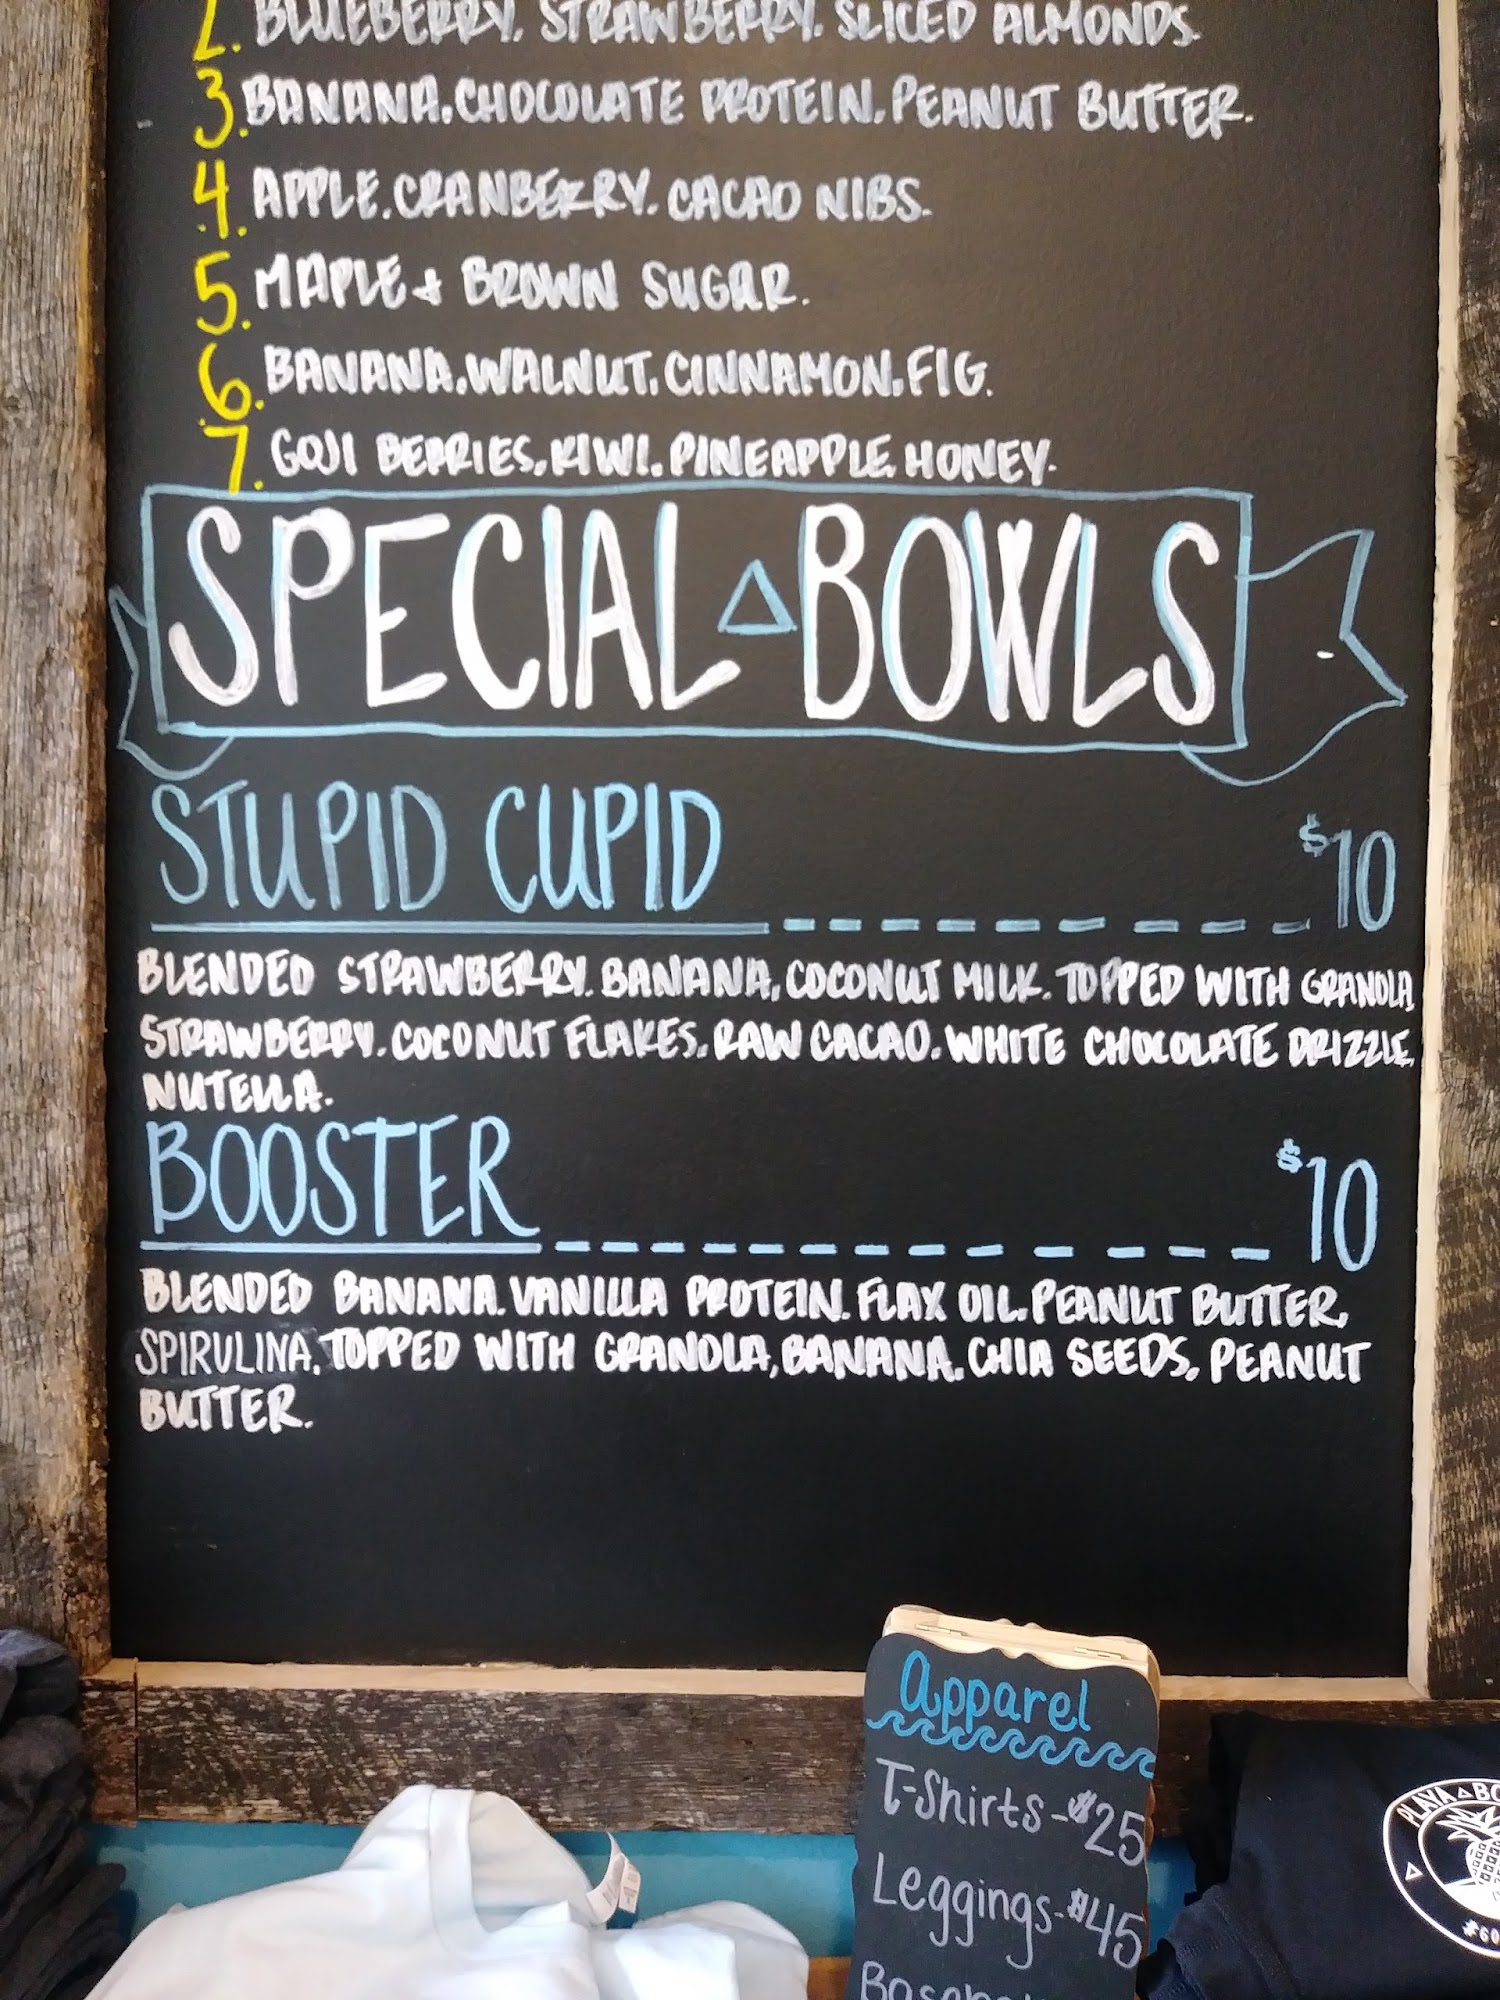 2. BLUEBERRY. STRAWBERRY. SLICED ALMONDS.
3. BANANA. CHOCOLATE PROTEIN. PEANUT BUTTER.
4. APPLE. CRANBERRY. CACAO NIBS.
5. MAPLE + BROWN SUGAR.
6. BANANA. WALNUT. CINNAMON. FIG.
7. GOJI BERRIES. KIWI. PINEAPPLE. HONEY.
SPECIAL BOWLS
STUPID CUPID $10
BLENDED STRAWBERRY. BANANA, COCONUT MILK. TOPPED WITH GRANOLA,
STRAWBERRY. COCONUT FLAKES. RAW CACAO. WHITE CHOCOLATE DRIZZLE,
NUTELLA.
BOOSTER $10
BLENDED BANANA. VANILLA PROTEIN. FLAX OIL. PEANUT BUTTER,
SPIRULINA. TOPPED WITH GRANOLA, BANANA. CHIA SEEDS, PEANUT
BUTTER.
Apparel
T-Shirts - $25
Leggings - $45
PLAYA